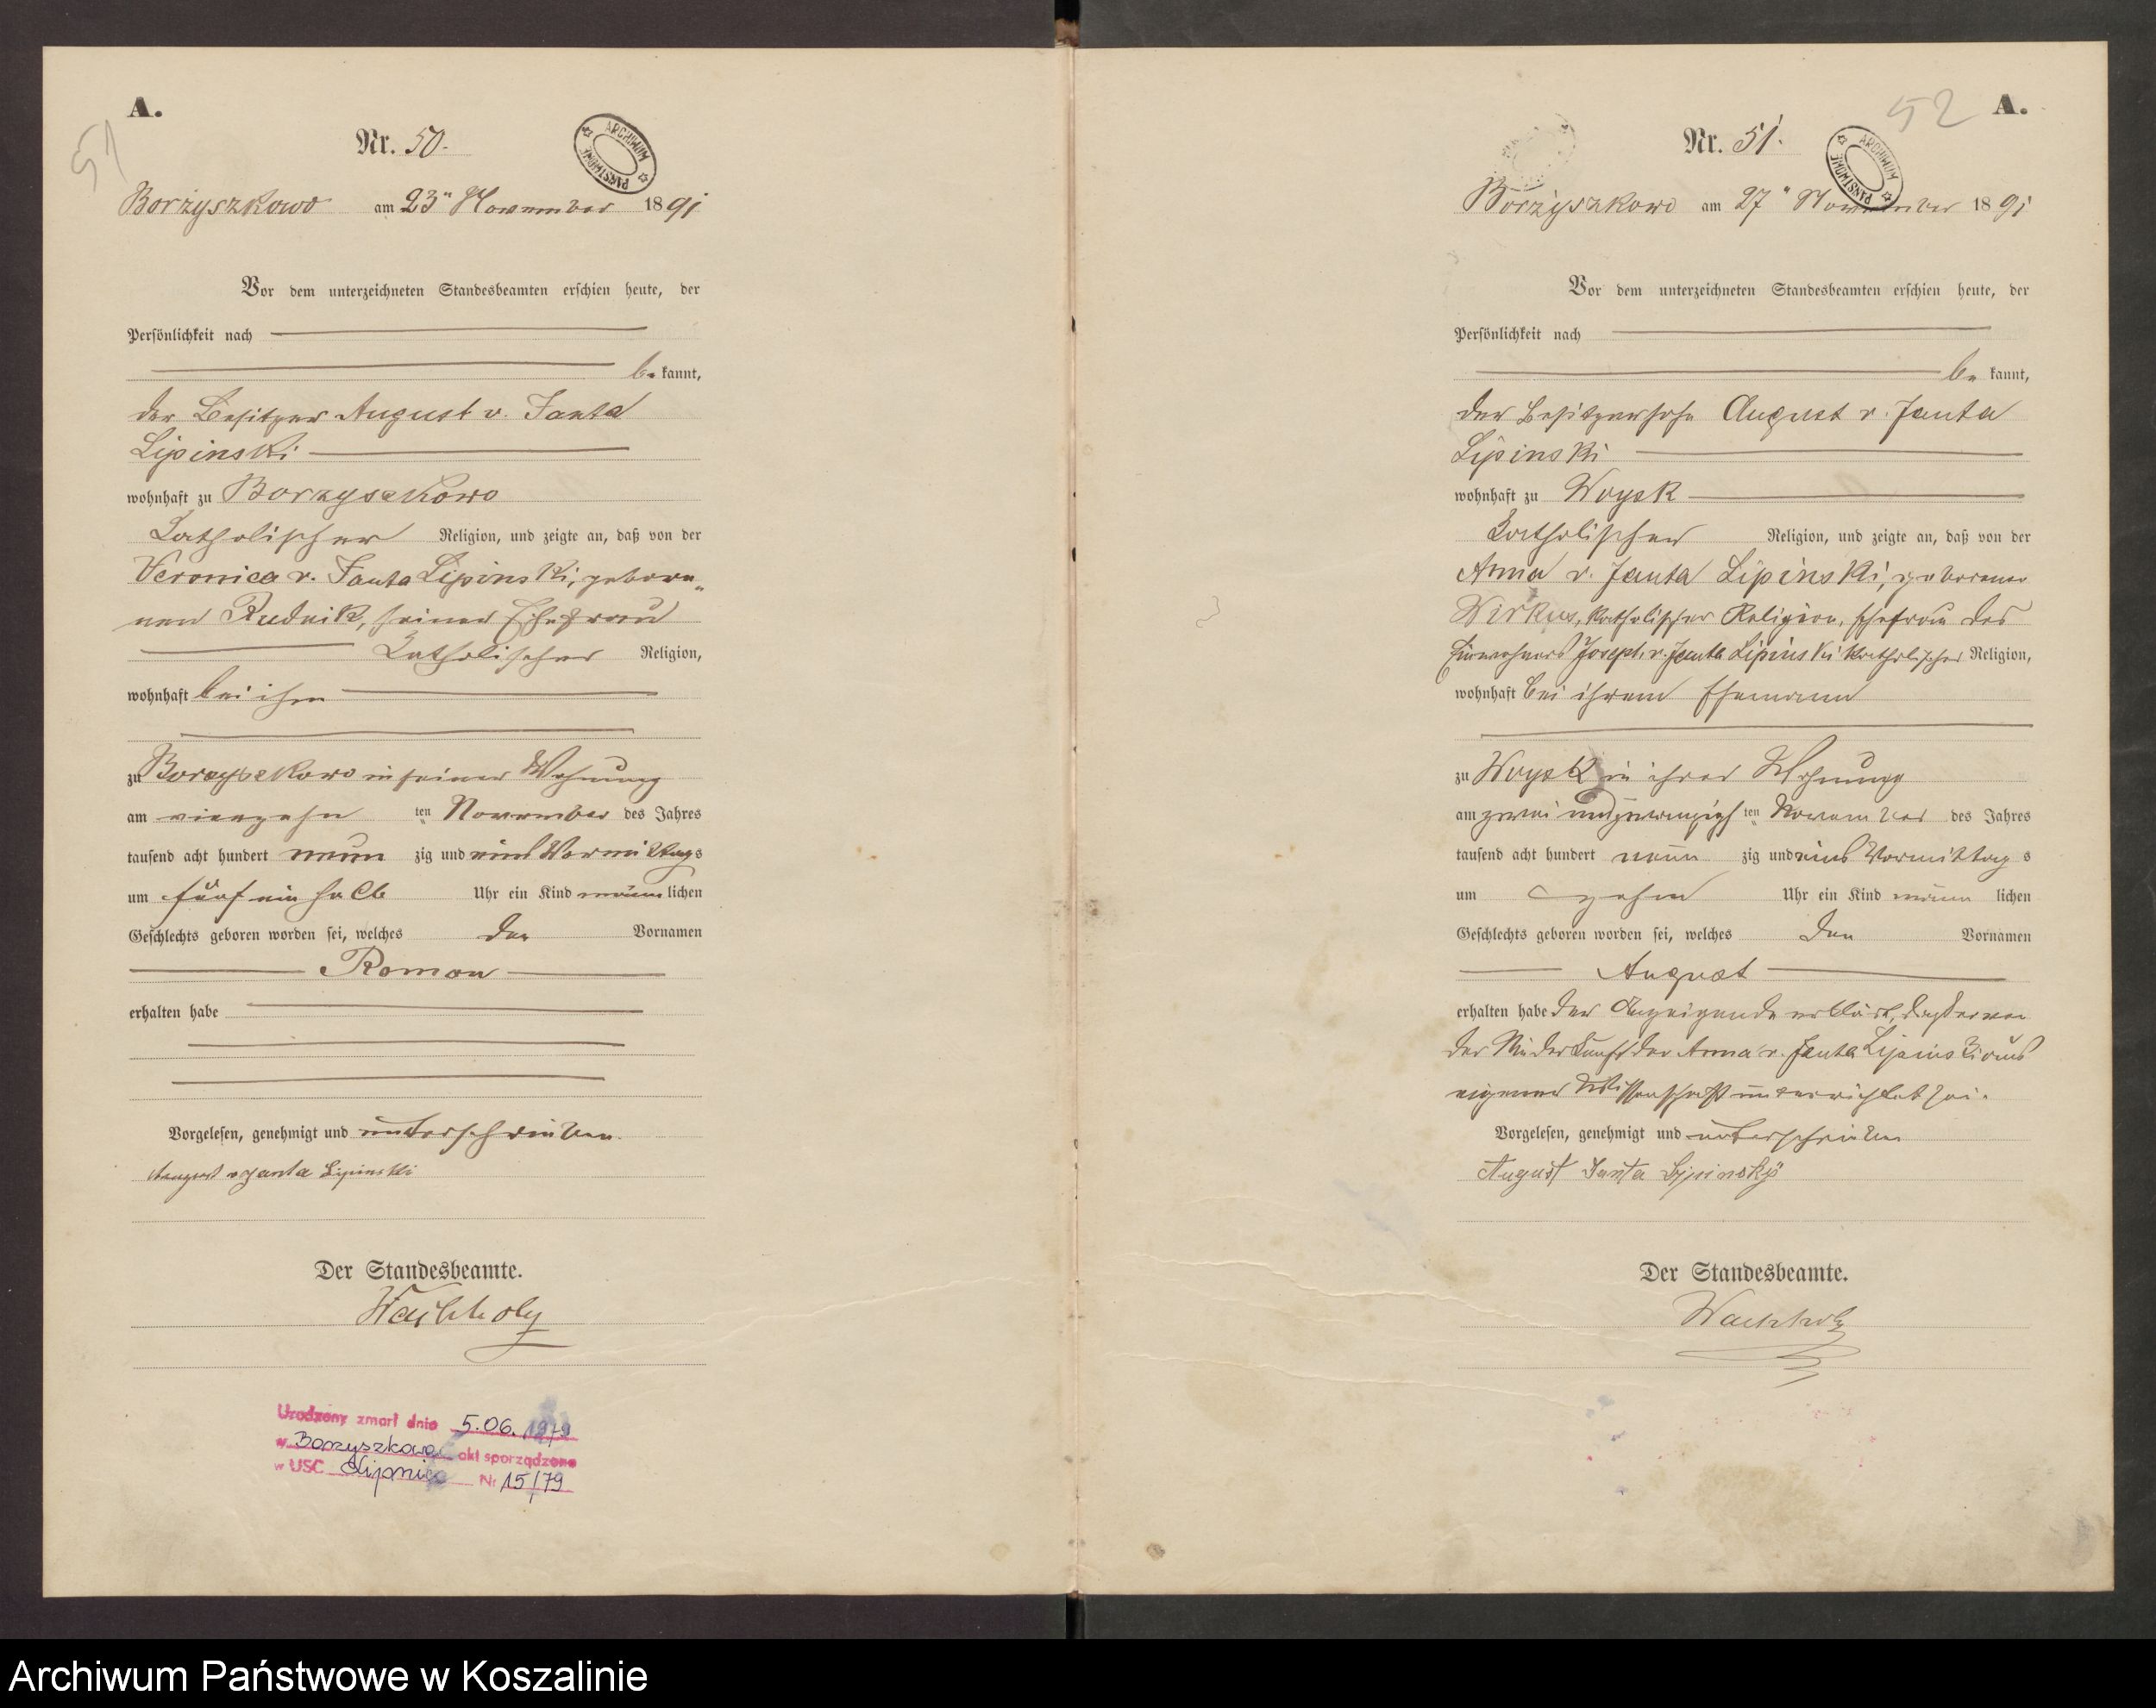 A.
51
Nr. 50.
ARCHIWUM PAŃSTWOWE
Borzyszkowo am 23ten November 1891
Vor dem unterzeichneten Standesbeamten erschien heute, der
Persönlichkeit nach
bekannt,
der Besitzer August v. Janta
Lipinski
wohnhaft zu Borzyszkowo
katholischer Religion, und zeigte an, daß von der
Veronica v. Janta Lipinski, gebore-
nen Rudnik, seiner Ehefrau
katholischer Religion,
wohnhaft bei ihm
zu Borzyszkowo in seiner Wohnung
am vierzehn ten November des Jahres
tausend acht hundert neun zig und eins Vormittags
um fünf ein halb Uhr ein Kind männlichen
Geschlechts geboren worden sei, welches den Vornamen
Roman
erhalten habe
Vorgelesen, genehmigt und unterschrieben.
August v Janta Lipinski
Der Standesbeamte.
Wachholz
Urodzony zmarł dnia 5.06.1979
w Borzyszkowa akt sporządzono
w USC Lipnica Nr 15/79
52
A.
Nr. 51.
ARCHIWUM PAŃSTWOWE
Borzyszkowo am 27ten November 1891
Vor dem unterzeichneten Standesbeamten erschien heute, der
Persönlichkeit nach
bekannt,
der Besitzersohn August v. Janta
Lipinski
wohnhaft zu Woysk
katholischer Religion, und zeigte an, daß von der
Anna v. Janta Lipinski, geborener
Wirkus, katholischer Religion, Ehefrau des
Einwohners Joseph v. Janta Lipinski katholischer Religion,
wohnhaft bei ihrem Ehemann
zu Woysk in ihrer Wohnung
am zwei und zwanzigsten November des Jahres
tausend acht hundert neun zig und eins Vormittags
um zehn Uhr ein Kind männlichen
Geschlechts geboren worden sei, welches den Vornamen
August
erhalten habe Der Anzeigende erklärt, daß er von
der Niederkunft der Anna v. Janta Lipinski aus
eigener Wissenschaft unterrichtet sei.
Vorgelesen, genehmigt und unterschrieben
August Janta Lipinsky
Der Standesbeamte.
Wachholz
Archiwum Państwowe w Koszalinie